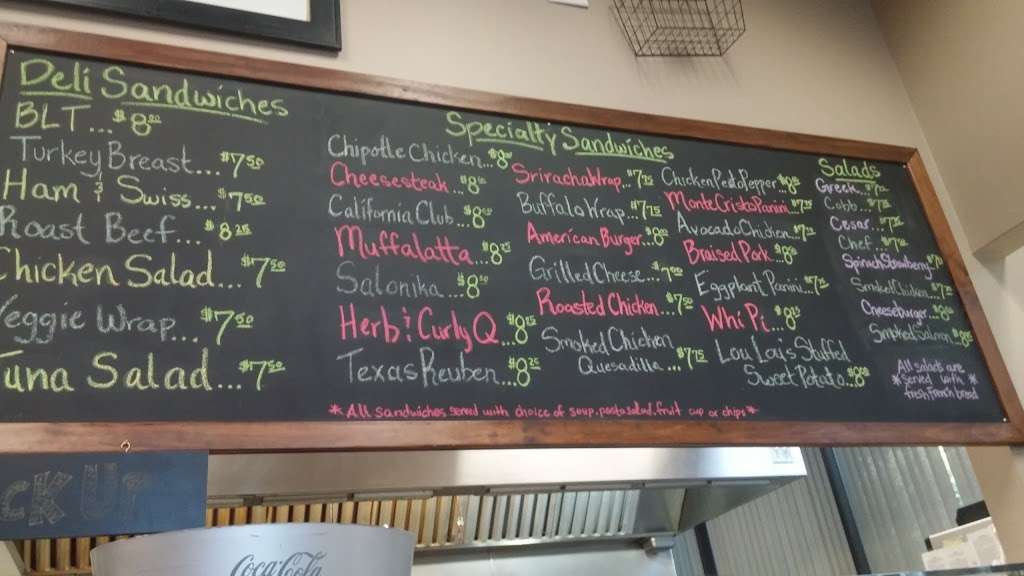 Deli Sandwiches
BLT...$8.00
Turkey Breast...$7.50
Ham & Swiss...$7.50
Roast Beef...$8.25
Chicken Salad...$7.50
Veggie Wrap...$7.50
Tuna Salad...$7.50
Specialty Sandwiches
Chipotle Chicken...
Cheesesteak...
California Club...
Muffalatta...
Salonika...
Herb & Curly Q...
Texas Reuben...$8.25
Sriracha Wrap...$7.75
Buffalo Wrap...$7.75
American Burger...
Grilled Cheese...
Roasted Chicken...
Smoked Chicken
Quesadilla...$7.75
Chicken Pesto Pepper...
Monte Cristo Panini...
Avocado Chicken...
Braised Pork...
Eggplant Panini...
Whi Pi...
Lou Loi's Stuffed
Sweet Potato...
Salads
Greek...
Cobb...
Cesar...
Chef...
Spinach Strawberry...
Smoked Chicken...
Cheeseburger...
Smoked Salmon...
All salads are
*served with*
fresh french bread
*All sandwiches served with choice of soup, pasta salad, fruit cup or chips*
CK Ur
Coca-Cola